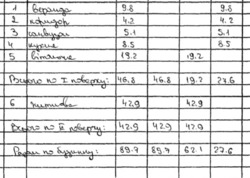 1 веранда 9.8 9.8
2 коридор 4.2 4.2
3 санвузол 5.1 5.1
4 кухня 8.5 8.5
5 вітальня 19.2 19.2
Всього по І поверху: 46.8 46.8 19.2 27.6
6 42.9 42.9
Всього по ІІ поверху: 42.9 42.9 42.9
Разом по будинку: 89.7 89.7 62.1 27.6